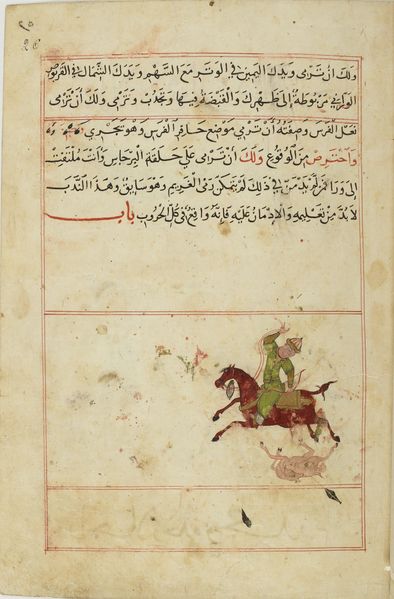 ولك ان ترمى ويدك اليمين في الوتر مع السهم ويدك الشمال في القربوص
مربوطة إلى ظهرك والقبضة فيها وتجذب وترمى ولك ان ترمى
نعل الفرس وصفته أن ترمي موضع حافر الفرس وهو يجري
واحترص من الوقوع ولك ان ترمى علي حلقة البرجاس وأنت ملتفت
إلى ورا فمن لم يدمن في ذلك لم يتمكن رمى الغريم وهو سابق وهذا الندب
لا بد من تعليمه والإدمان عليه فانه واقع في كل الحروب باب